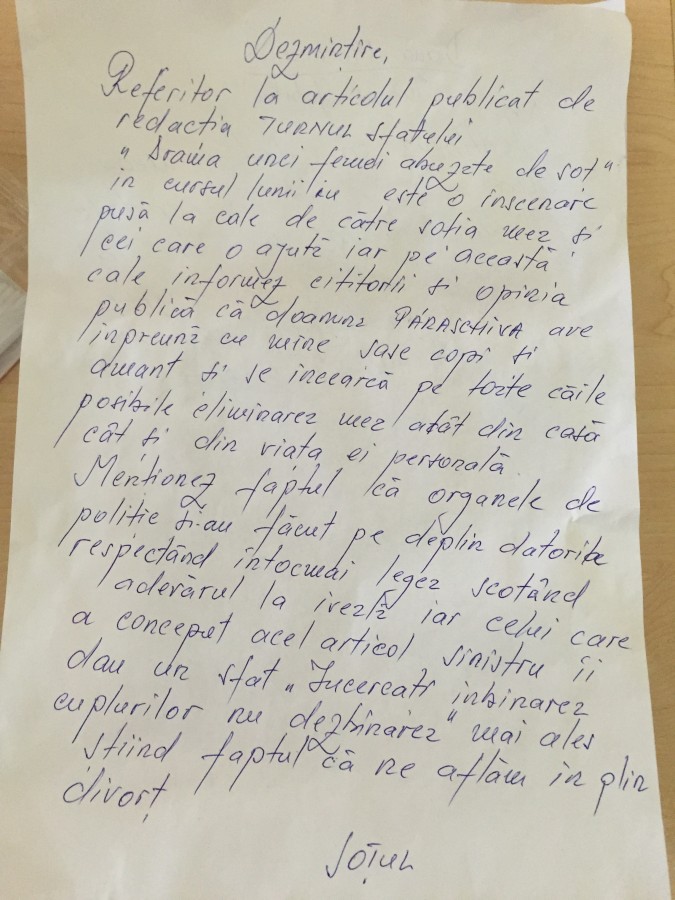 Dezmințire,
Referitor la articolul publicat de
redactia TURNUL Sfatului
„Drama unei femei abuzate de soț"
in cursul lunii iu este o înscenare
pusă la cale de către soția mea și
cei care o ajută iar pe această
cale informez cititorii si opinia
publică că doamna PARASCHIVA are
inpreună cu mine sase copi si
amant și se incearcă pe toate căile
posibile eliminarea mea atât din casă
cât și din viata ei personală.
Mentionez faptul că organele de
politie si-au făcut pe deplin datoria
respectând întocmai legea scotând
adevărul la iveală iar celui care
a conceput acel articol sinistru îi
dau un sfat „Incercati inbinarea
cuplurilor nu dezbinarea" mai ales
stiind faptul că ne aflăm in plin
divorț
SOȚUL